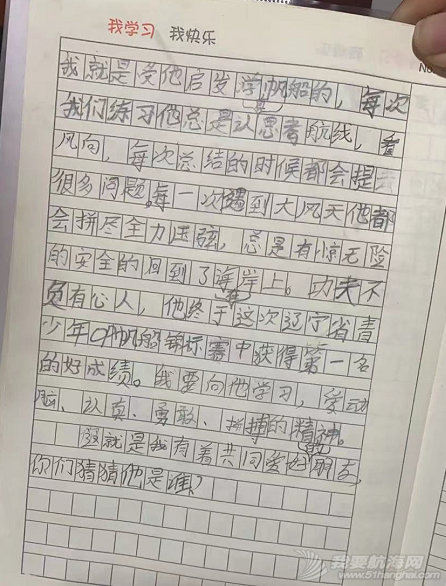 我学习 我快乐
No
我就是受他启发学帆船的，每次
我们练习他总是认思考航线，看
风向，每次总结的时候都会提
很多问题。每一次遇到大风天他都
会拼尽全力压弦，总是有惊无险
的安全的回到了海岸上。功夫不
负有心人，他终于在这次辽宁省青
少年OP帆船锦标赛中获得第一名
的好成绩。我要向他学习，爱动
脑、认真、勇敢、拼搏的精神。
这就是我有着共同爱好的朋友，
你们猜猜他是谁？
我要航海网
www.51hanghai.com